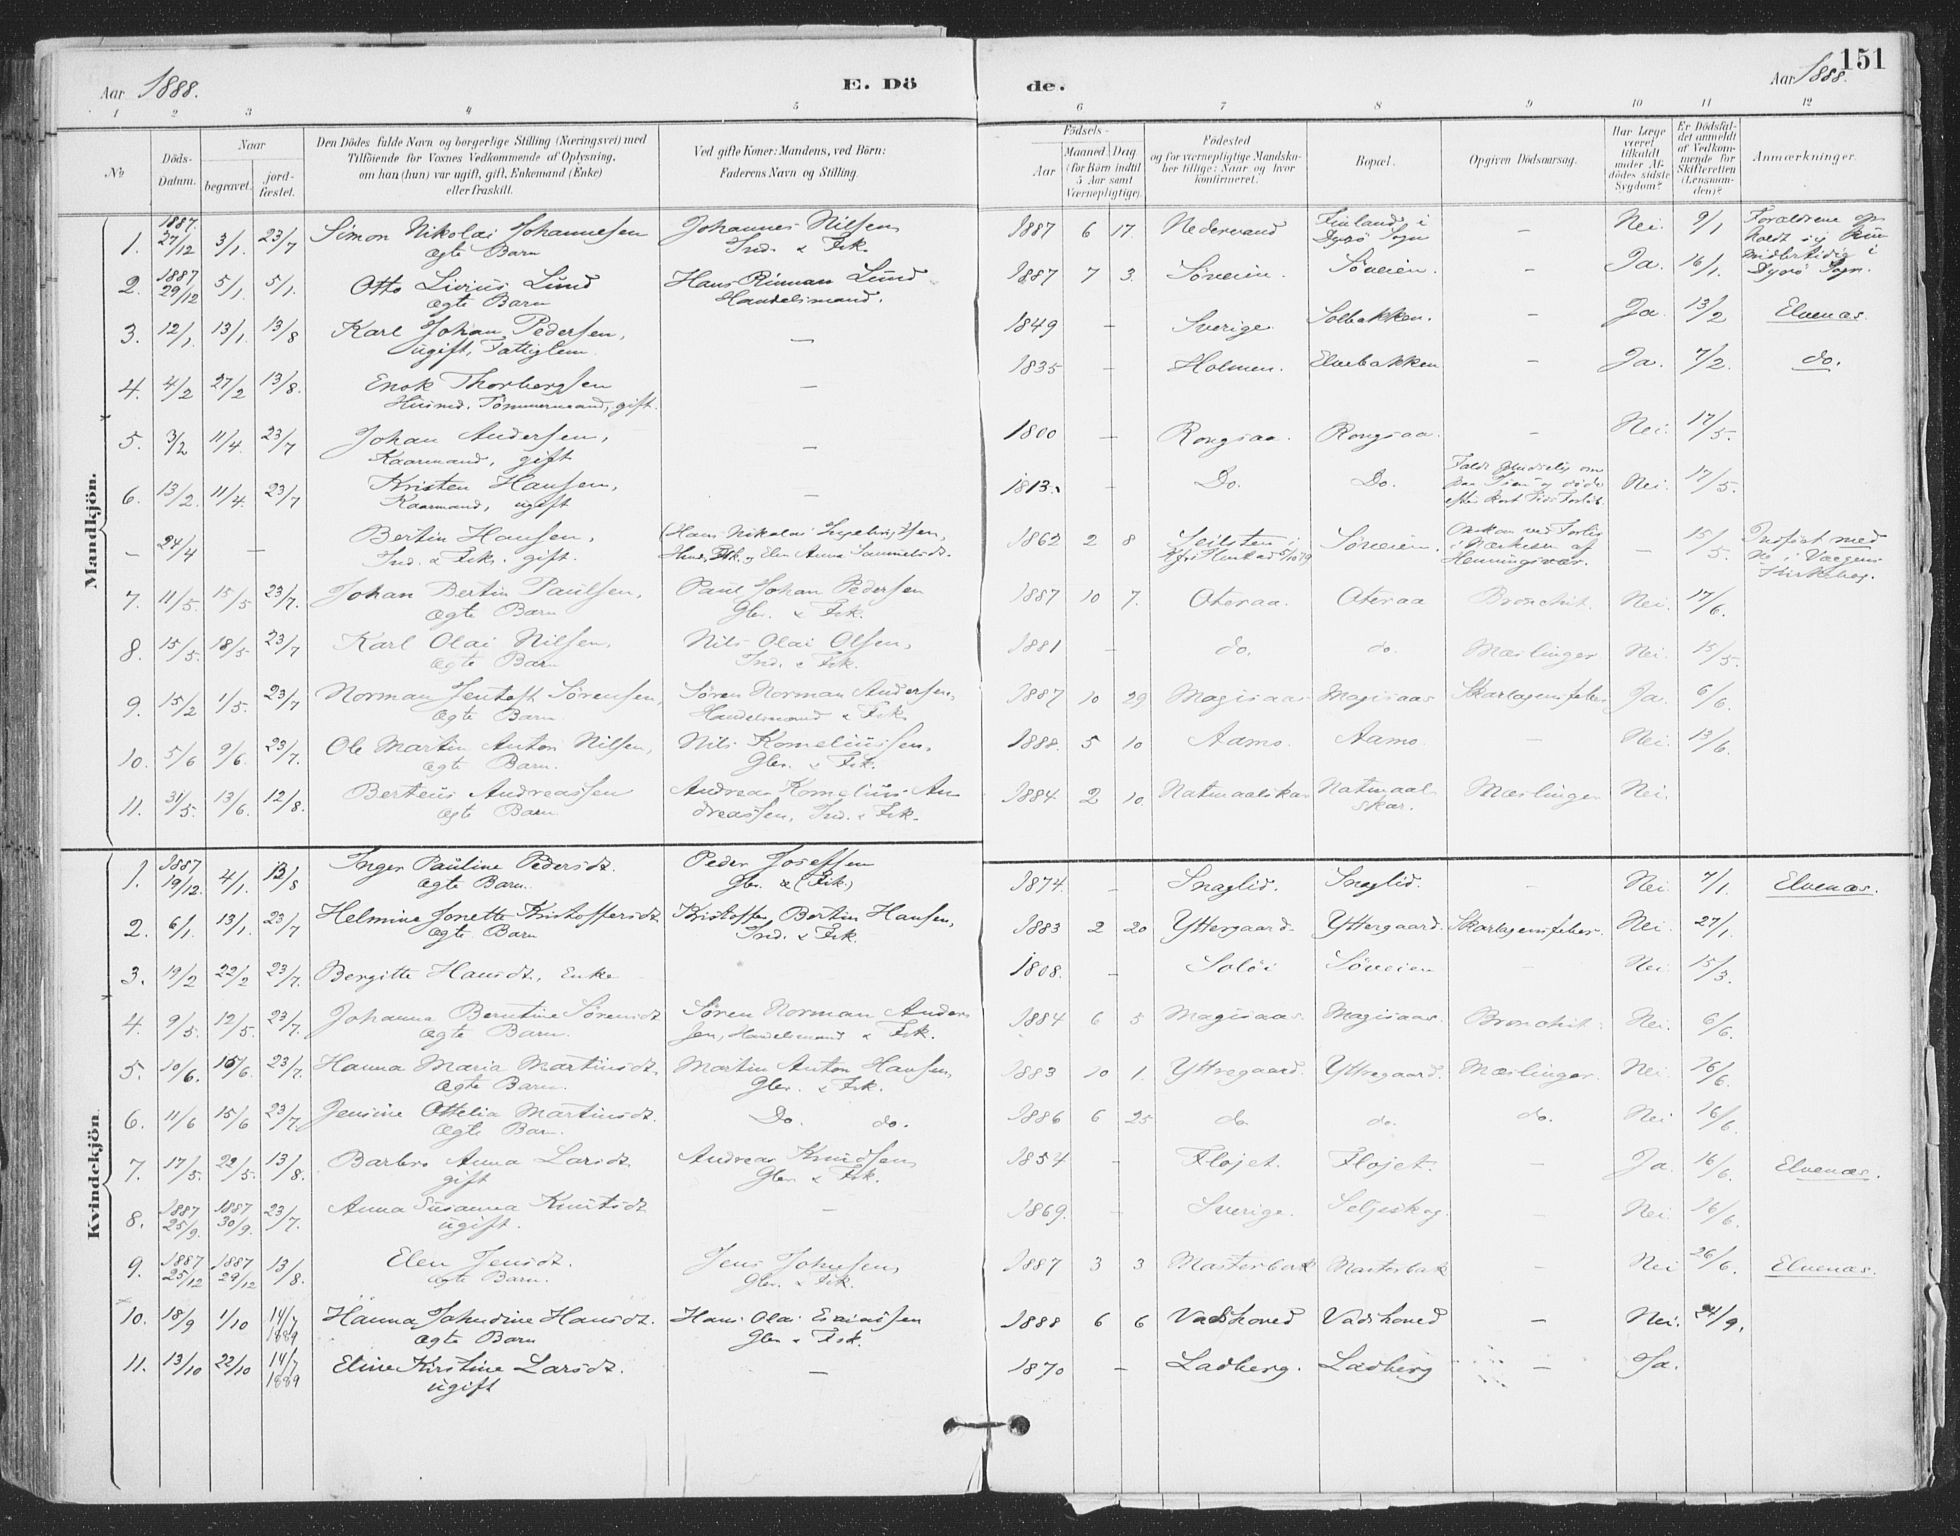 151
Aar 1888. E. Dö de. Aar 1888.
1 2 3 4 5 6 7 8 9 10 11 12
No
Döds-Datum.
Naar
begravet. jordfæstet.
Den Dödes fulde Navn og borgerlige Stilling (Næringsvei) med
Tilföiende for Voxnes Vedkommende af Oplysning,
om han (hun) var ugift, gift, Enkemand (Enke)
eller fraskilt.
Ved gifte Koner: Mandens, ved Börn:
Faderens Navn og Stilling.
Födsels-
Aar
Maaned Dag
(for Börn indtil 5 Aar samt Værnepligtige).
Födested
og for værnepligtige Mandskaber tillige: Naar og hvor konfirmeret.
Bopæl.
Opgiven Dödsaarsag.
Har Læge været tilkaldt under Afdödes sidste Sygdom?
Er Dödsfaldet anmeldt af Vedkommende for Skifteretten (Lensmanden)?
Anmærkninger.
Mandkjön.
1. 1887. 27/12 3/1. 23/7 Simon Nikolai Johannesen Johannes Nilsen 1887 6 17. Nedervand Finland i Nei. 9/1 Forældrene op
ægte Barn Ind. & Fisk. Dyrö Sogn holdt sig
midlertidig i
Dyrö Sogn.
2. 1887 29/12 5/1. 5/1. Otto Livius Lund Hans Rinman Lund 1887 7 3. Söveien. Söveien. - Ja. 16/1.
ægte Barn Handelsmand.
3. 12/1. 13/1. 13/8 Karl Johan Pedersen, - 1849 - Sverige. Solbakken. - Ja. 13/2 Elvenæs.
ugift, Fattiglem.
4. 4/2 27/2 13/8. Enok Thorbergsen - 1835 - Holmen. Elvebakken - Ja. 7/2. do.
Husmd. Tömmermand, gift.
5. 3/2 11/4. 23/7 Johan Andersen, - 1800 - Rongsaa. Rongsaa. - Nei. 17/5.
Kaarmand, gift
6. 13/2. 11/4. 23/7 Kristen Hansen, - 1813. - Do. Do. Faldt pludselig om Nei. 17/5.
Kaarmand, ugift
- 24/4 - Bertin Hansen, (Hans Nikolai 1862 2 8 Seilsten i Söveien. Omkom ved Forlis - 15/5. Indført med
Ind. & Fisk. gift. Elen Anna Samuelsdt. i Nærheden af Henningsvær. Kirkebog.
7. 11/5. 15/5 23/7. Johan Bertin Paulsen, Paul Johan Pedersen 1887 10 7. Oteraa. Oteraa Bronchit. Nei. 17/6.
ægte Barn. Gbr. & Fisk.
8. 15/5. 18/5. 23/7 Karl Olai Nilsen, Nils Olai Olsen, 1881 - do. do. Mæslinger Nei. 15/5.
ægte Barn Ind. & Fisk.
9. 15/2 1/5. 23/7 Norman Jentoft Sörensen, Sören Norman Andersen, 1887 10 29 Magisaas Magisaas Skarlagensfeber Ja. 6/6.
ægte Barn. Handelsmand & Fisk.
10. 5/6 9/6. 23/7. Ole Martin Anton Nilsen, Nils Korneliussen, 1888. 5 10 Aamo. Aamo. - Nei. 13/6.
ægte Barn. Gbr. & Fisk.
11. 31/5. 13/6 12/8. Berteus Andreassen Andreas Kornelius An 1884 2 10. Natmaalskar Natmaal Mæslinger Nei.
ægte Barn. dreassen, Ind. & Fisk. skar.
Kvindekjön.
1. 1887 19/12. 4/1. 13/8 Inger Pauline Pedersdt. Peder Josefsen 1874. - Snaglid. Snaglid. - Nei. 7/1. Elvenæs.
ægte Barn. Gbr. & (Fisk)
2. 6/1. 13/1. 23/7 Helmine Jonette Kristoffersdt. Kristoffer Bertin Hansen, 1883 2 20 Yttergaard. Yttergaard. Skarlagensfeber. Nei. 27/1.
ægte Barn Ind. & Fisk.
3. 19/2 22/2 23/7. Bergitte Hansdt. Enke - 1808. - Solöi Söveien - Nei. 15/3.
4. 9/5. 12/5. 23/7. Johanna Berntine Sörensdt. Sören Norman Anders 1884 6 5 Magisaas. Magisaas. Bronchit. Nei. 6/6.
ægte Barn. sen, Handelsmand & Fisk.
5. 10/6. 15/6. 23/7. Hanna Maria Martinsdt. Martin Anton Hansen, 1883 10 1. Yttregaard. Yttregaard. Mæslinger. Nei. 16/6.
ægte Barn. Gbr. & Fisk.
6. 11/6 15/6 23/7. Jensine Ottelia Martinsdt. Do. do. 1886 6 25 do. do. do. Nei 16/6.
ægte Barn.
7. 17/5. 22/5. 13/8. Barbro Anna Larsdt. Andreas Knudsen, 1854 - Flöjet. Flöjet. - Ja. 16/6. Elvenæs.
gift Gbr. & Fisk.
8. 1887 25/9. 1887 30/9. 23/7. Anna Susanna Knutsdt. - 1869. - Sverige. Seljeskog. - Nei. 16/6.
ugift.
9. 1887 25/12 1887 29/12 13/8. Elen Jensdt. Jens Johnsen, 1887 3 3 Masterbak Masterbak - Nei 26/6. Elvenæs.
ægte Barn. Gbr. & Fisk.
10. 18/9 1/10 14/7 1889 Hanna Johndine Hansdt. Hans Olai Esaiassen 1888 6 6 Vadshoved Vadshoved - Nei. 24/9.
ægte Barn Gbr. & Fisk.
11. 13/10 22/10 14/7 1889 Eline Kirstine Larsdt. - 1870 - Ladberg. Ladberg - Ja.
ugift